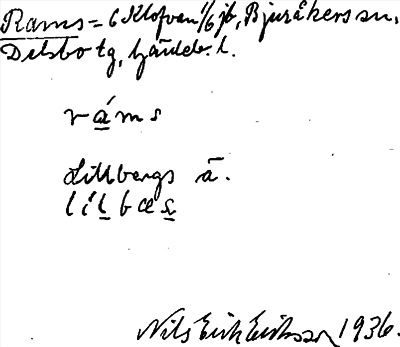 Rams = 6 Klofven 1/6 jb, Bjuråkers sn,
Delsbo tg, Gävleb. l.
råms
Lillbergs å.
lílbæs
Nils Erik Eriksson 1936.